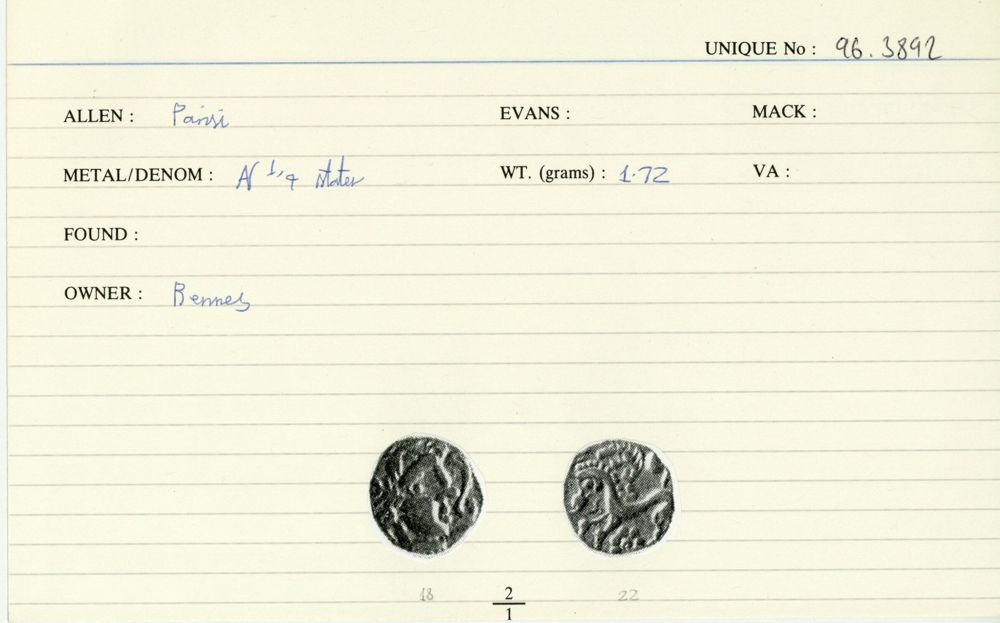 UNIQUE No : 96.3892
ALLEN : Parisi EVANS : MACK :
METAL/DENOM : N 1/4 stater WT. (grams) : 1.72 VA :
FOUND :
OWNER :
18 2/1 22